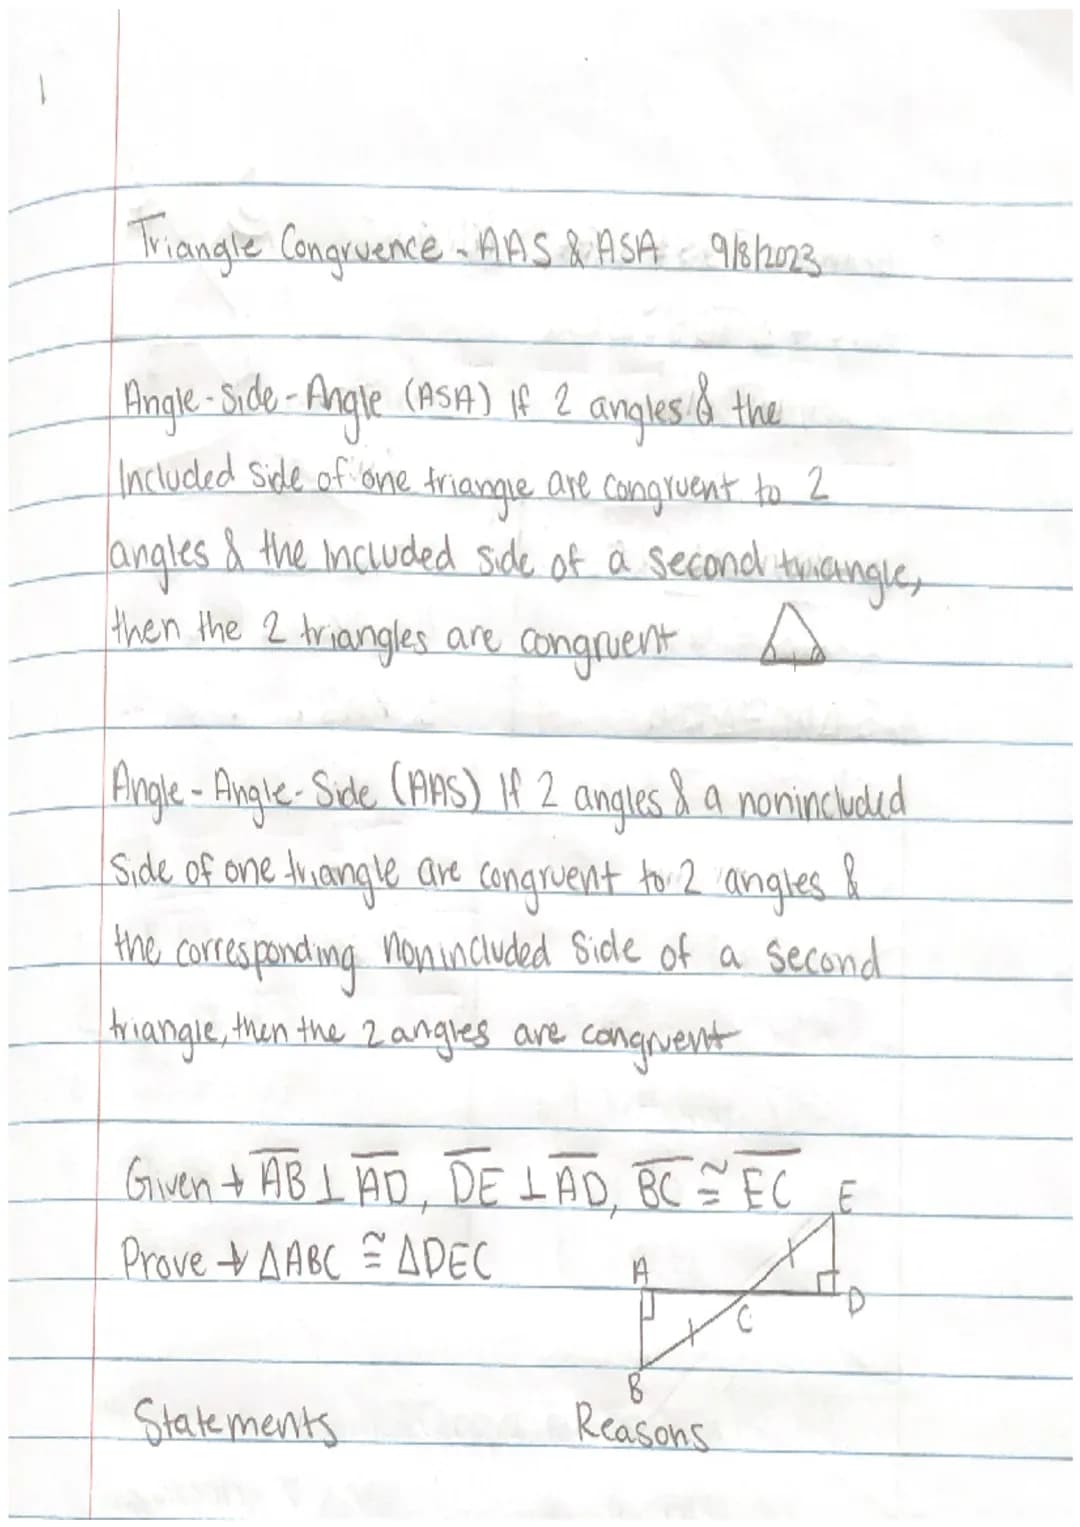 1
Triangle Congruence - AAS & ASA 9/8/2023
Angle-Side-Angle (ASA) If 2 angles & the
Included side of one triangle are congruent to 2
angles & the Included side of a second triangle,
then the 2 triangles are congruent
Angle-Angle-Side (AAS) If 2 angles & a nonincluded
Side of one triangle are congruent to 2 angles &
the corresponding nonincluded Side of a second
triangle, then the 2 angles are congruent
Given → A̅B̅ ⊥ A̅D̅, D̅E̅ ⊥ A̅D̅, B̅C̅ ≅ E̅C̅
E
Prove → ΔABC ≅ ΔDEC
A
D
C
B
Statements Reasons